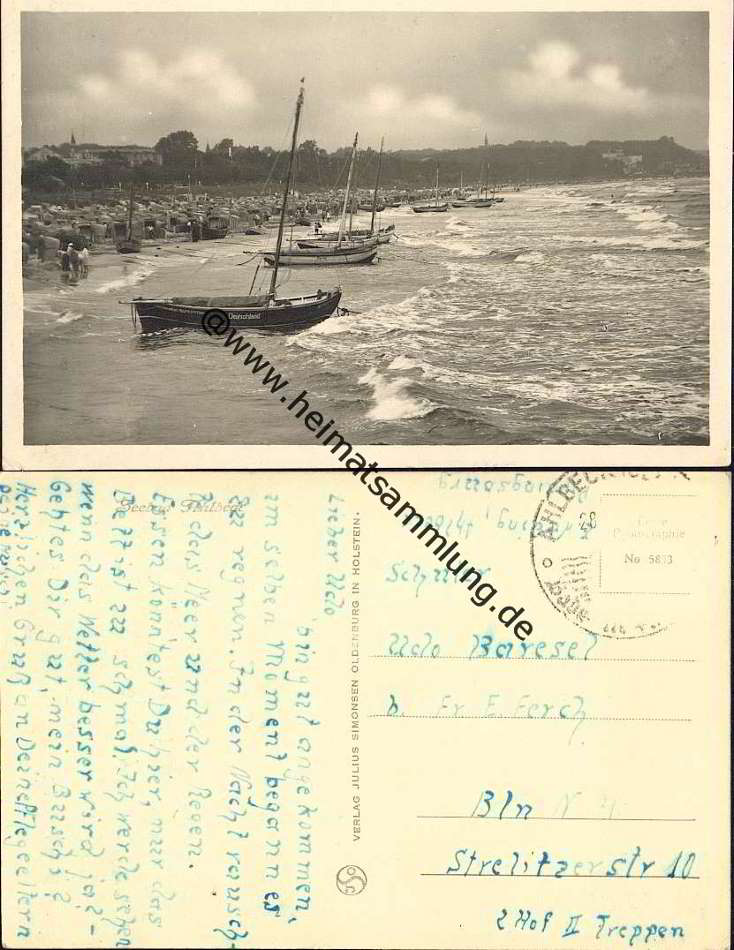 Deutschland
@www.heimatsammlung.de
Seebad Ahlbeck
Lieber Udo
bin gut angekommen,
im selben Moment begann es
zu regnen. In der Nacht rausch-
te das Meer und der Regen.
Essen könntest Du hier, nur das
Bett ist zu schmal. Ich werde sehen
wenn das Wetter besser wird
Geht es Dir gut, mein Bursch?
Herzlichen Gruß an Deine Pflegeeltern
VERLAG JULIUS SIMONSEN OLDENBURG IN HOLSTEIN.
AHLBECK
28
Echte
Photographie
No 5813
Schüler
Udo Baresel
b. Fr. E. Ferch
Bln N 4
Strelitzerstr 10
2 Hof II Treppen